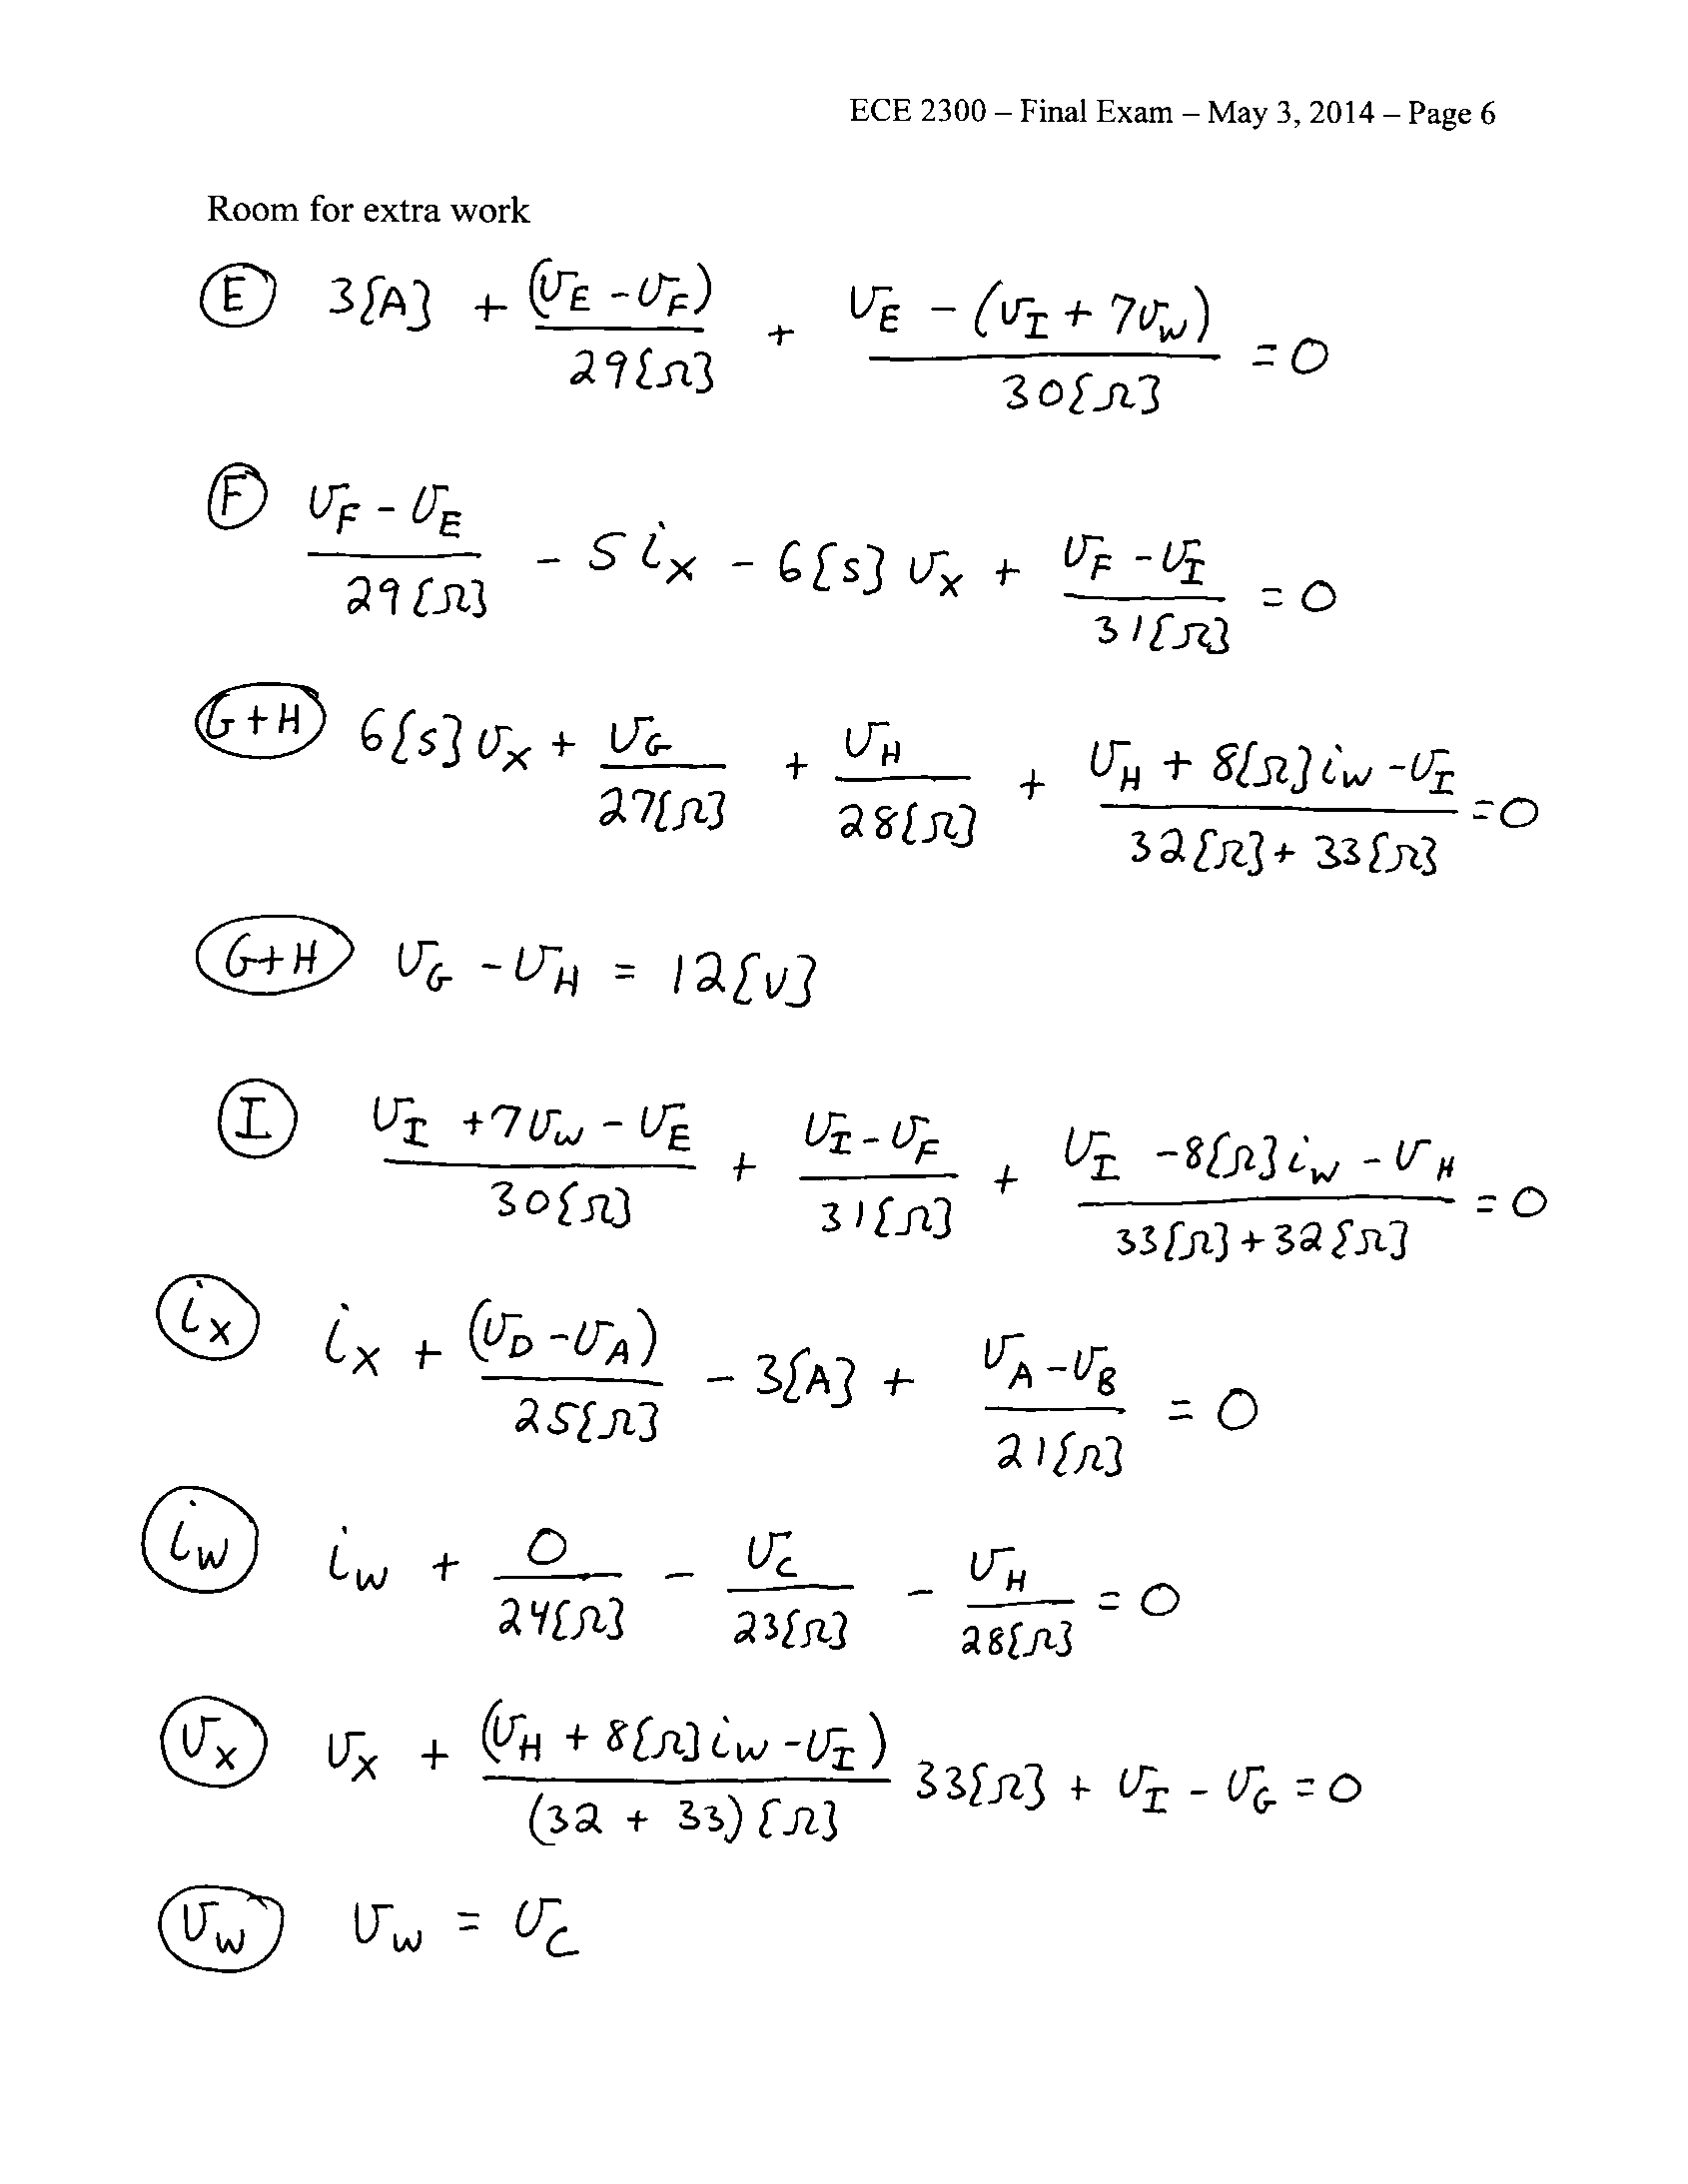 ECE 2300 – Final Exam – May 3, 2014 – Page 6
Room for extra work
(E) 3{A} + (v_E - v_F) / 29{Ω} + v_E - (v_I + 7v_w) / 30{Ω} = 0
(F) v_F - v_E / 29{Ω} - 5 i_x - 6{s} v_x + v_F - v_I / 31{Ω} = 0
(G+H) 6{s} v_x + v_G / 27{Ω} + v_H / 28{Ω} + v_H + 8{Ω} i_w - v_I / 32{Ω} + 33{Ω} = 0
(G+H) v_G - v_H = 12{V}
(I) v_I + 7v_w - v_E / 30{Ω} + v_I - v_F / 31{Ω} + v_I - 8{Ω} i_w - v_H / 33{Ω} + 32{Ω} = 0
(i_x) i_x + (v_D - v_A) / 25{Ω} - 3{A} + v_A - v_B / 21{Ω} = 0
(i_w) i_w + 0 / 24{Ω} - v_C / 23{Ω} - v_H / 28{Ω} = 0
(v_x) v_x + (v_H + 8{Ω} i_w - v_I) / (32 + 33){Ω} 33{Ω} + v_I - v_G = 0
(v_w) v_w = v_C